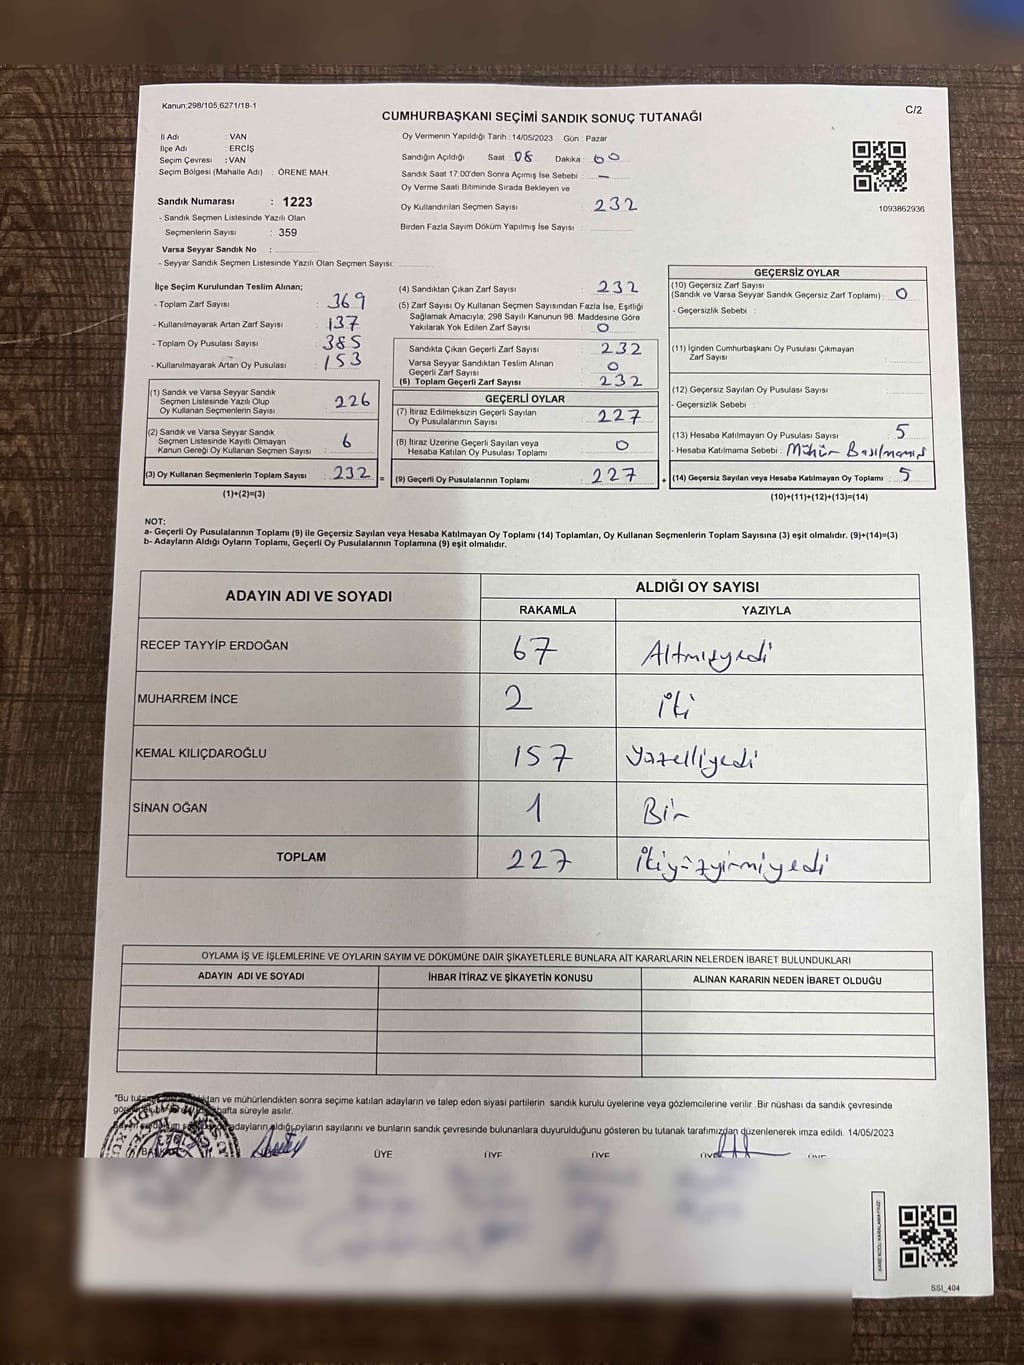 Kanun:298/105,6271/18-1
C/2
CUMHURBAŞKANI SEÇİMİ SANDIK SONUÇ TUTANAĞI
İl Adı : VAN
İlçe Adı : ERCİŞ
Seçim Çevresi : VAN
Seçim Bölgesi (Mahalle Adı) : ÖRENE MAH.
Oy Vermenin Yapıldığı Tarih : 14/05/2023 Gün : Pazar
Sandığın Açıldığı Saat 08 Dakika : 00
Sandık Saat 17:00'den Sonra Açımış İse Sebebi : —
Oy Verme Saati Bitiminde Sırada Bekleyen ve
Oy Kullandırılan Seçmen Sayısı 232
Birden Fazla Sayım Döküm Yapılmış İse Sayısı :
1093862936
Sandık Numarası : 1223
- Sandık Seçmen Listesinde Yazılı Olan
Seçmenlerin Sayısı : 359
Varsa Seyyar Sandık No :
- Seyyar Sandık Seçmen Listesinde Yazılı Olan Seçmen Sayısı:
İlçe Seçim Kurulundan Teslim Alınan;
- Toplam Zarf Sayısı : 369
- Kullanılmayarak Artan Zarf Sayısı : 137
- Toplam Oy Pusulası Sayısı : 385
- Kullanılmayarak Artan Oy Pusulası : 153
(1) Sandık ve Varsa Seyyar Sandık
Seçmen Listesinde Yazılı Olup
Oy Kullanan Seçmenlerin Sayısı : 226
(2) Sandık ve Varsa Seyyar Sandık
Seçmen Listesinde Kayıtlı Olmayan
Kanun Gereği Oy Kullanan Seçmen Sayısı : 6
(3) Oy Kullanan Seçmenlerin Toplam Sayısı : 232 =
(1)+(2)=(3)
(4) Sandıktan Çıkan Zarf Sayısı : 232
(5) Zarf Sayısı Oy Kullanan Seçmen Sayısından Fazla İse, Eşitliği
Sağlamak Amacıyla, 298 Sayılı Kanunun 98. Maddesine Göre
Yakılarak Yok Edilen Zarf Sayısı : 0
Sandıkta Çıkan Geçerli Zarf Sayısı : 232
Varsa Seyyar Sandıktan Teslim Alınan
Geçerli Zarf Sayısı : 0
(6) Toplam Geçerli Zarf Sayısı : 232
GEÇERLİ OYLAR
(7) İtiraz Edilmeksizin Geçerli Sayılan
Oy Pusulalarının Sayısı : 227
(8) İtiraz Üzerine Geçerli Sayılan veya
Hesaba Katılan Oy Pusulası Toplamı : 0
(9) Geçerli Oy Pusulalarının Toplamı : 227 +
GEÇERSİZ OYLAR
(10) Geçersiz Zarf Sayısı
(Sandık ve Varsa Seyyar Sandık Geçersiz Zarf Toplamı) : 0
- Geçersizlik Sebebi :
(11) İçinden Cumhurbaşkanı Oy Pusulası Çıkmayan
Zarf Sayısı :
(12) Geçersiz Sayılan Oy Pusulası Sayısı :
- Geçersizlik Sebebi :
(13) Hesaba Katılmayan Oy Pusulası Sayısı : 5
- Hesaba Katılmama Sebebi : Mühür Basılmamış
(14) Geçersiz Sayılan veya Hesaba Katılmayan Oy Toplamı : 5
(10)+(11)+(12)+(13)=(14)
NOT:
a- Geçerli Oy Pusulalarının Toplamı (9) ile Geçersiz Sayılan veya Hesaba Katılmayan Oy Toplamı (14) Toplamları, Oy Kullanan Seçmenlerin Toplam Sayısına (3) eşit olmalıdır. (9)+(14)=(3)
b- Adayların Aldığı Oyların Toplamı, Geçerli Oy Pusulalarının Toplamına (9) eşit olmalıdır.
ADAYIN ADI VE SOYADI ALDIĞI OY SAYISI
RAKAMLA YAZIYLA
RECEP TAYYİP ERDOĞAN 67 Altmışyedi
MUHARREM İNCE 2 iki
KEMAL KILIÇDAROĞLU 157 Yüzelliyedi
SİNAN OĞAN 1 Bir
TOPLAM 227 ikiyüzyirmiyedi
OYLAMA İŞ VE İŞLEMLERİNE VE OYLARIN SAYIM VE DÖKÜMÜNE DAİR ŞİKAYETLERLE BUNLARA AİT KARARLARIN NELERDEN İBARET BULUNDUKLARI
ADAYIN ADI VE SOYADI İHBAR İTİRAZ VE ŞİKAYETİN KONUSU ALINAN KARARIN NEDEN İBARET OLDUĞU
"Bu ve mühürlendikten sonra seçime katılan adayların ve talep eden siyasi partilerin sandık kurulu üyelerine veya gözlemcilerine verilir. Bir nüshası da sandık çevresinde
hafta süreyle asılır.
adayların aldığı oyların sayılarını ve bunların sandık çevresinde bulunanlara duyurulduğunu gösteren bu tutanak tarafımızdan düzenlenerek imza edildi. 14/05/2023
ÜYE ÜYE ÜYE ÜYE ÜYE
SSİ_404